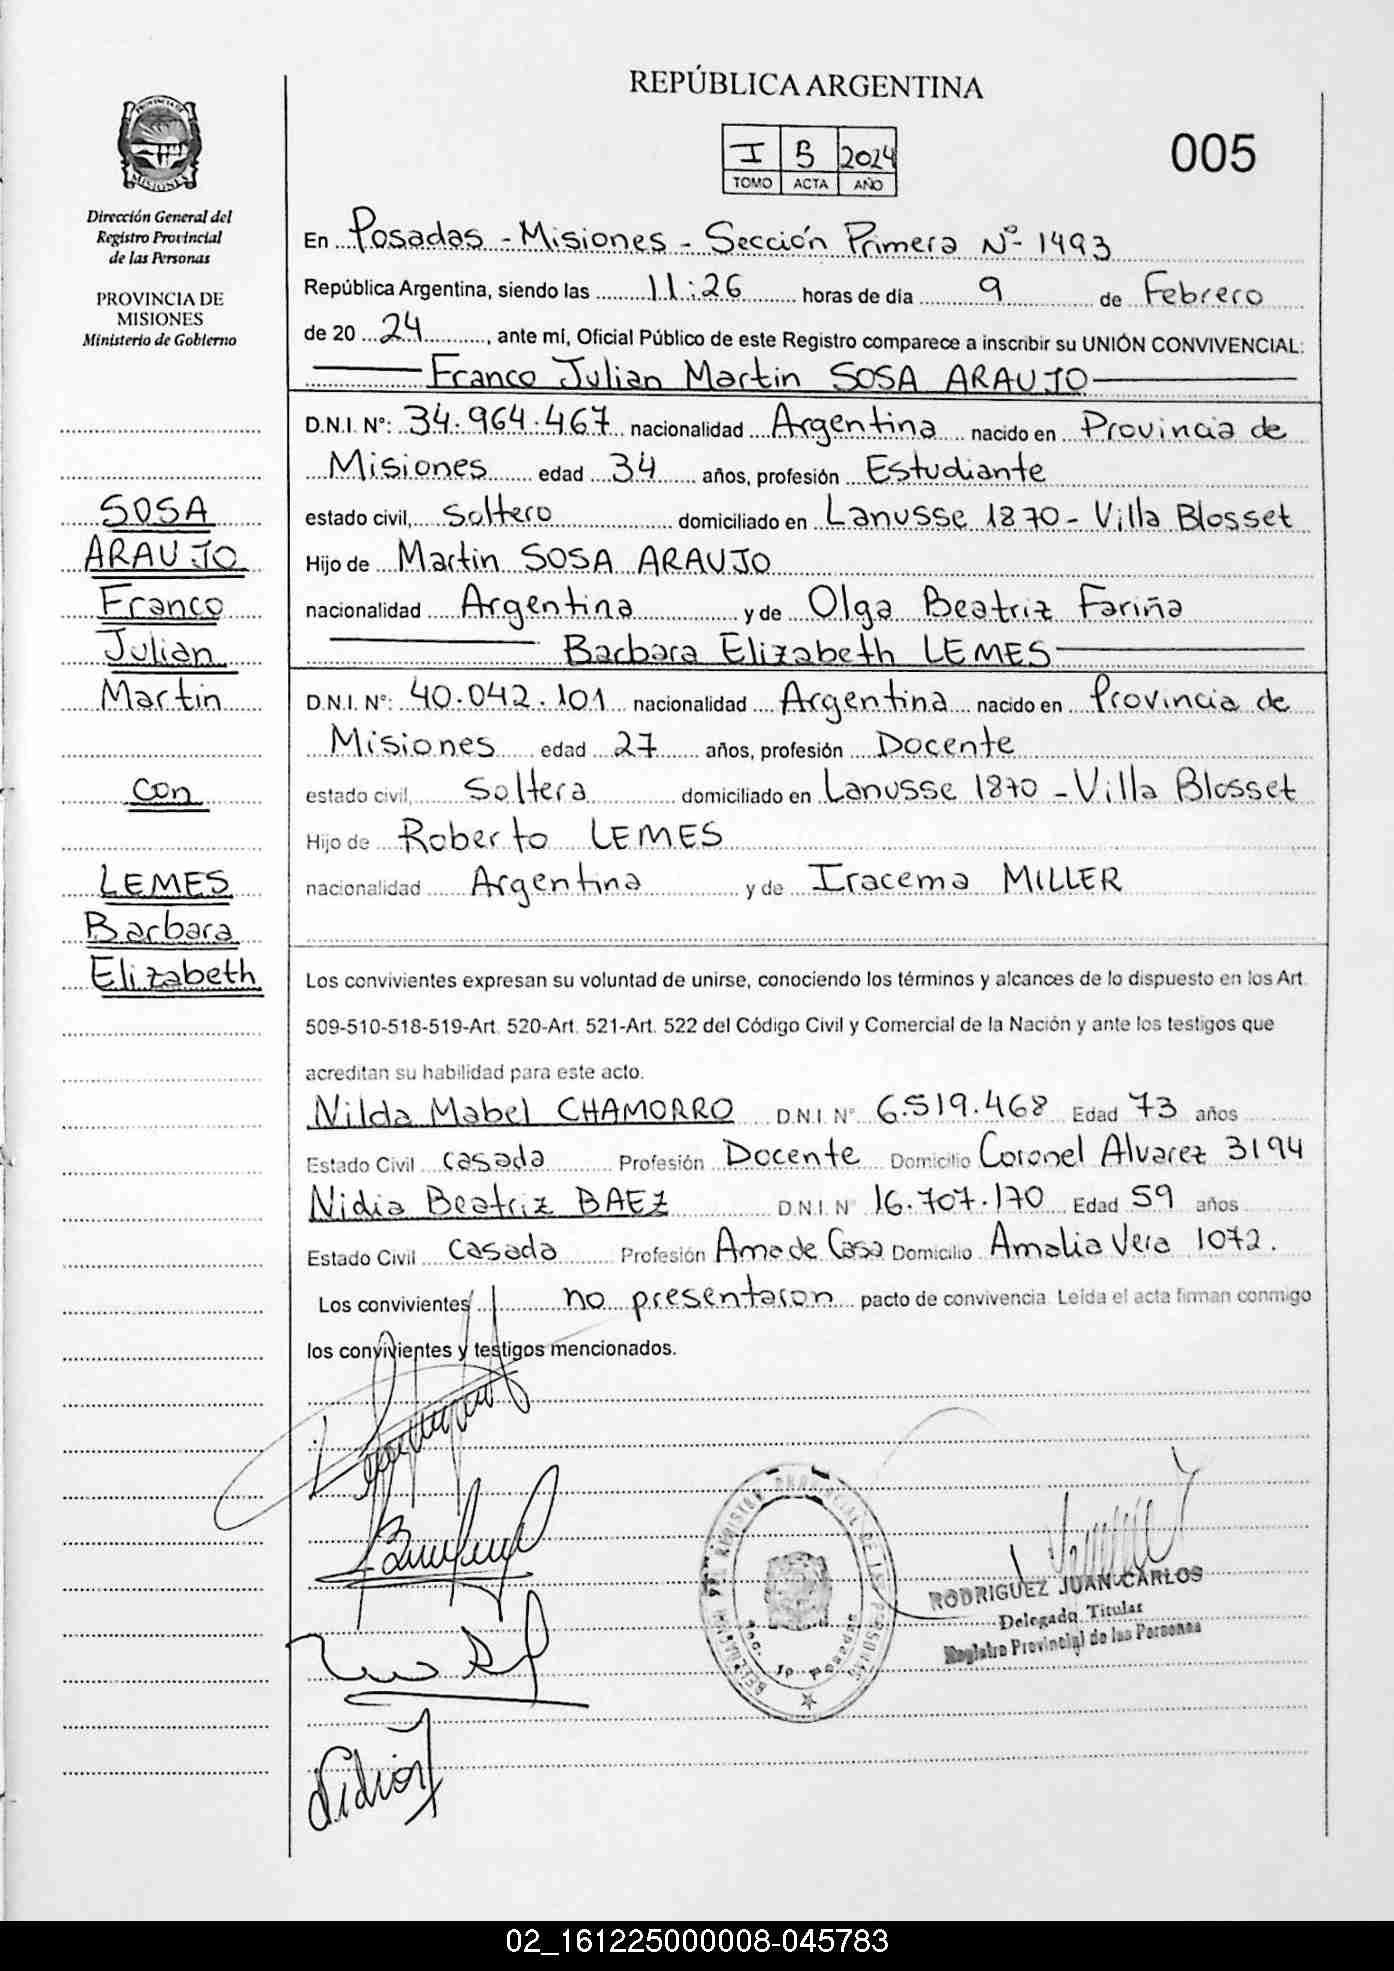 REPÚBLICA ARGENTINA
I 5 2024
TOMO ACTA AÑO
005
PROVINCIA DE
MISIONES
Dirección General del
Registro Provincial
de las Personas
PROVINCIA DE
MISIONES
Ministerio de Gobierno
SOSA
ARAUJO
Franco
Julián
Martin
con
LEMES
Barbara
Elizabeth
En Posadas - Misiones - Sección Primera Nº 1493
República Argentina, siendo las 11:26 horas de día 9 de Febrero
de 20 24, ante mí, Oficial Público de este Registro comparece a inscribir su UNIÓN CONVIVENCIAL:
Franco Julian Martin SOSA ARAUJO
D.N.I. Nº: 34.964.467 nacionalidad Argentina nacido en Provincia de
Misiones edad 34 años, profesión Estudiante
estado civil, Soltero domiciliado en Lanusse 1870 - Villa Blosset
Hijo de Martin SOSA ARAUJO
nacionalidad Argentina y de Olga Beatriz Fariña
Barbara Elizabeth LEMES
D.N.I. Nº: 40.042.101 nacionalidad Argentina nacido en Provincia de
Misiones edad 27 años, profesión Docente
estado civil, Soltera domiciliado en Lanusse 1870 - Villa Blosset
Hijo de Roberto LEMES
nacionalidad Argentina y de Iracema MILLER
Los convivientes expresan su voluntad de unirse, conociendo los términos y alcances de lo dispuesto en los Art.
509-510-518-519-Art. 520-Art. 521-Art. 522 del Código Civil y Comercial de la Nación y ante los testigos que
acreditan su habilidad para este acto.
Nilda Mabel CHAMORRO D.N.I. Nº 6.519.468 Edad 73 años
Estado Civil casada Profesión Docente Domicilio Coronel Alvarez 3194
Nidia Beatriz BAEZ D.N.I. Nº 16.707.170 Edad 59 años
Estado Civil casada Profesión Ama de Casa Domicilio Amalia Vera 1072.
Los convivientes no presentaron pacto de convivencia. Leída el acta firman conmigo
los convivientes y testigos mencionados.
RODRIGUEZ JUAN CARLOS
Delegado Titular
Registro Provincial de las Personas
02_161225000008-045783